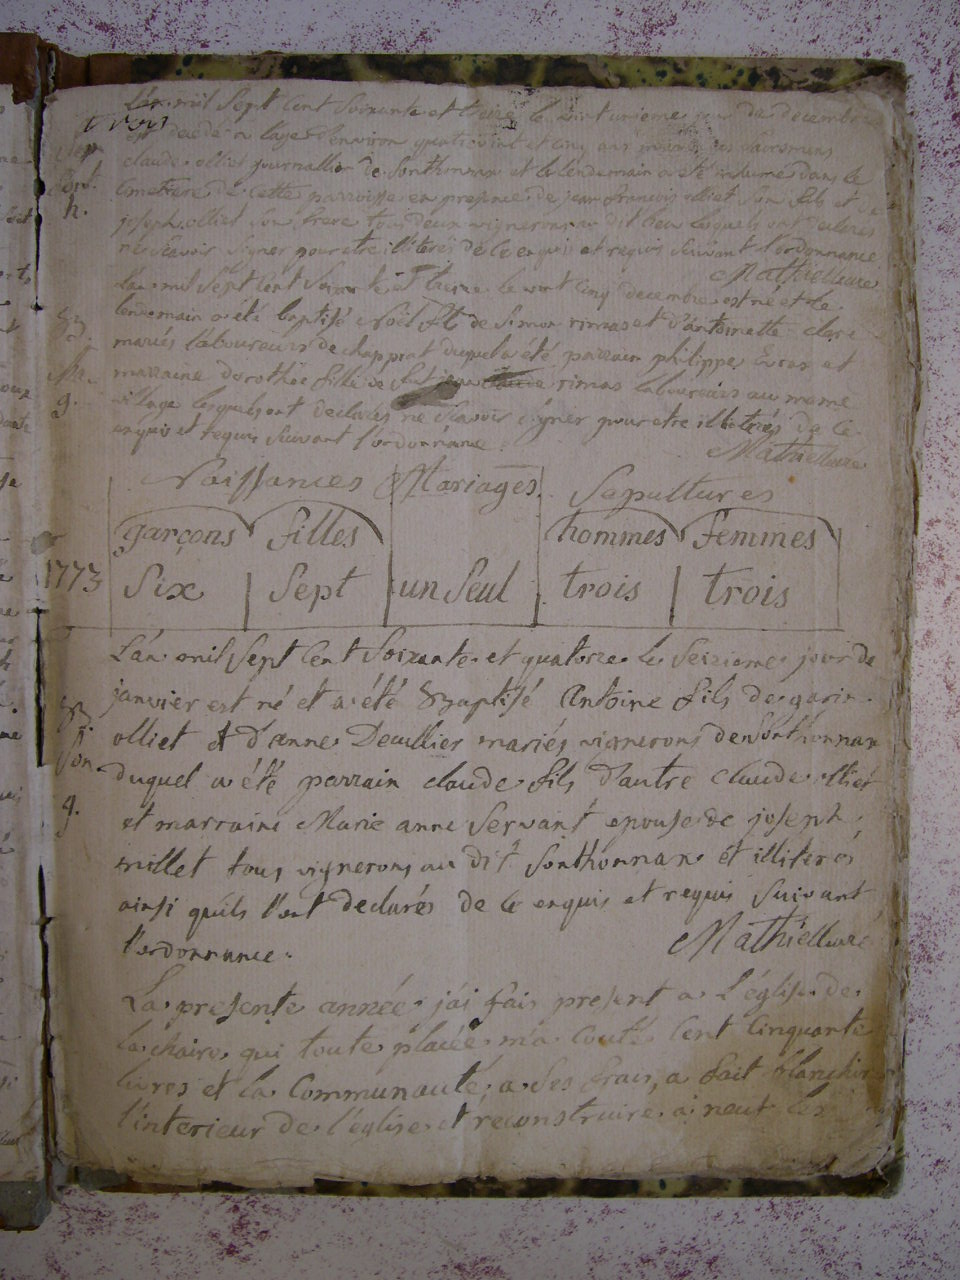 L'an mil Sept Cent Soixante et treize le vint unieme jour de decembre
est decedé a l'age d'environ quatre vint et cinq ans
claude olliet journallier de Sonthonnax et le lendemain a été inhumé dans le
Cimetiere de Cette parroisse en presence de jean francois olliet Son fils et de
joseph olliet Son frere tous deux vignerons au dit lieu lesquels ont declarés
ne Scavoir Signer pour etre illiterés de Ce enquis et requis Suivant l'ordonnance
Mathieu Curé
L'an mil Sept Cent Soixante et treize le vint Cinq decembre est né et le
lendemain a été baptisé Noël fils de Simon rimas et d'antoinette
mariés laboureurs de chapprat duquel a été parrain philippe et
marraine dorothée fille de rimas laboureurs au meme
village lesquels ont declarés ne Scavoir Signer pour etre illiterés de Ce
enquis et requis Suivant l'ordonnance
Mathieu Curé
B.
g.
Naissances Mariages Sepultures
garçons filles hommes femmes
1773 Six Sept un Seul trois trois
L'an mil Sept Cent Soixante et quatorze le Seizieme jour de
janvier est né et a été Baptisé Antoine fils de garin
olliet et d'anne mariés vignerons de Sonthonnax
B.
Son.
g.
duquel a été parrain claude fils d'autre claude olliet
et marraine Marie anne Servant epouse de joseph
millet tous vignerons au dit Sonthonnax et illiterés
ainsi qu'ils l'ont declarés de Ce enquis et requis Suivant
l'ordonnance.
Mathieu Curé
La presente année j'ai fais present a l'église de
la chaire qui toute placée m'a Couté Cent Cinquante
livres et la Communauté, a Ses frais, a fait blanchir
l'interieur de l'église et reconstruire a neuf les